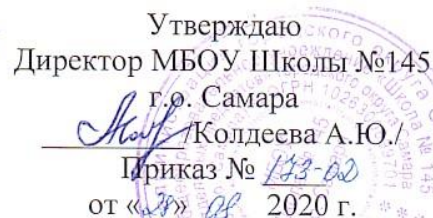 Утверждаю
Директор МБОУ Школы №145
г.о. Самара
/Колдеева А.Ю./
Приказ № 173-02
от «28» 08 2020 г.